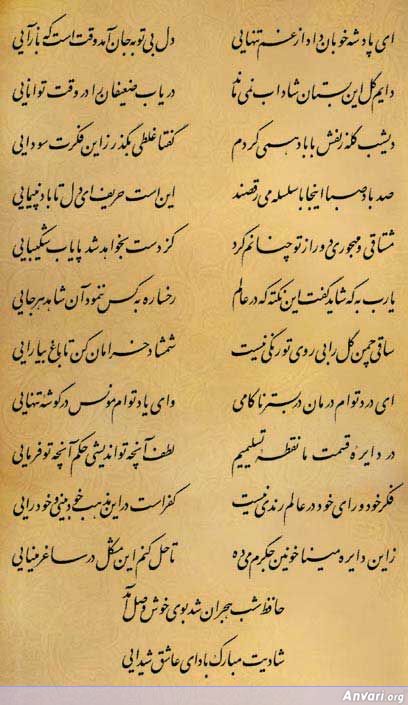 ای پادشه خوبان داد از غم تنهایی دل بی تو به جان آمد وقت است که بازآیی
دایم گل این بستان شاداب نمی ماند دریاب ضعیفان را در وقت توانایی
دیشب گله زلفش با باد همی کردم گفتا غلطی بگذر زاین فکرت سودایی
صد باد صبا اینجا با سلسله می رقصند این است حریف ای دل تا باد نپیمایی
مشتاقی و مهجوری دور از تو چنانم کرد کز دست بخواهد شد پایاب شکیبایی
یارب به که شاید گفت این نکته که در عالم رخساره به کس ننمود آن شاهد هرجایی
ساقی چمن گل را بی روی تو رنگی نیست شمشاد خرامان کن تا باغ بیارایی
ای درد توام درمان در بستر ناکامی وای یاد توام مونس در گوشه تنهایی
در دایره قسمت ما نقطه تسلیمیم لطف آنچه تو اندیشی حکم آنچه تو فرمایی
فکر خود و رای خود در عالم رندی نیست کفر است در این مذهب خودبینی و خودرایی
زاین دایره مینا خونین جگرم می ده تا حل کنم این مشکل در ساغر مینایی
حافظ شب هجران شد بوی خوش وصل آمد
شادیت مبارک باد ای عاشق شیدایی
Anvari.org